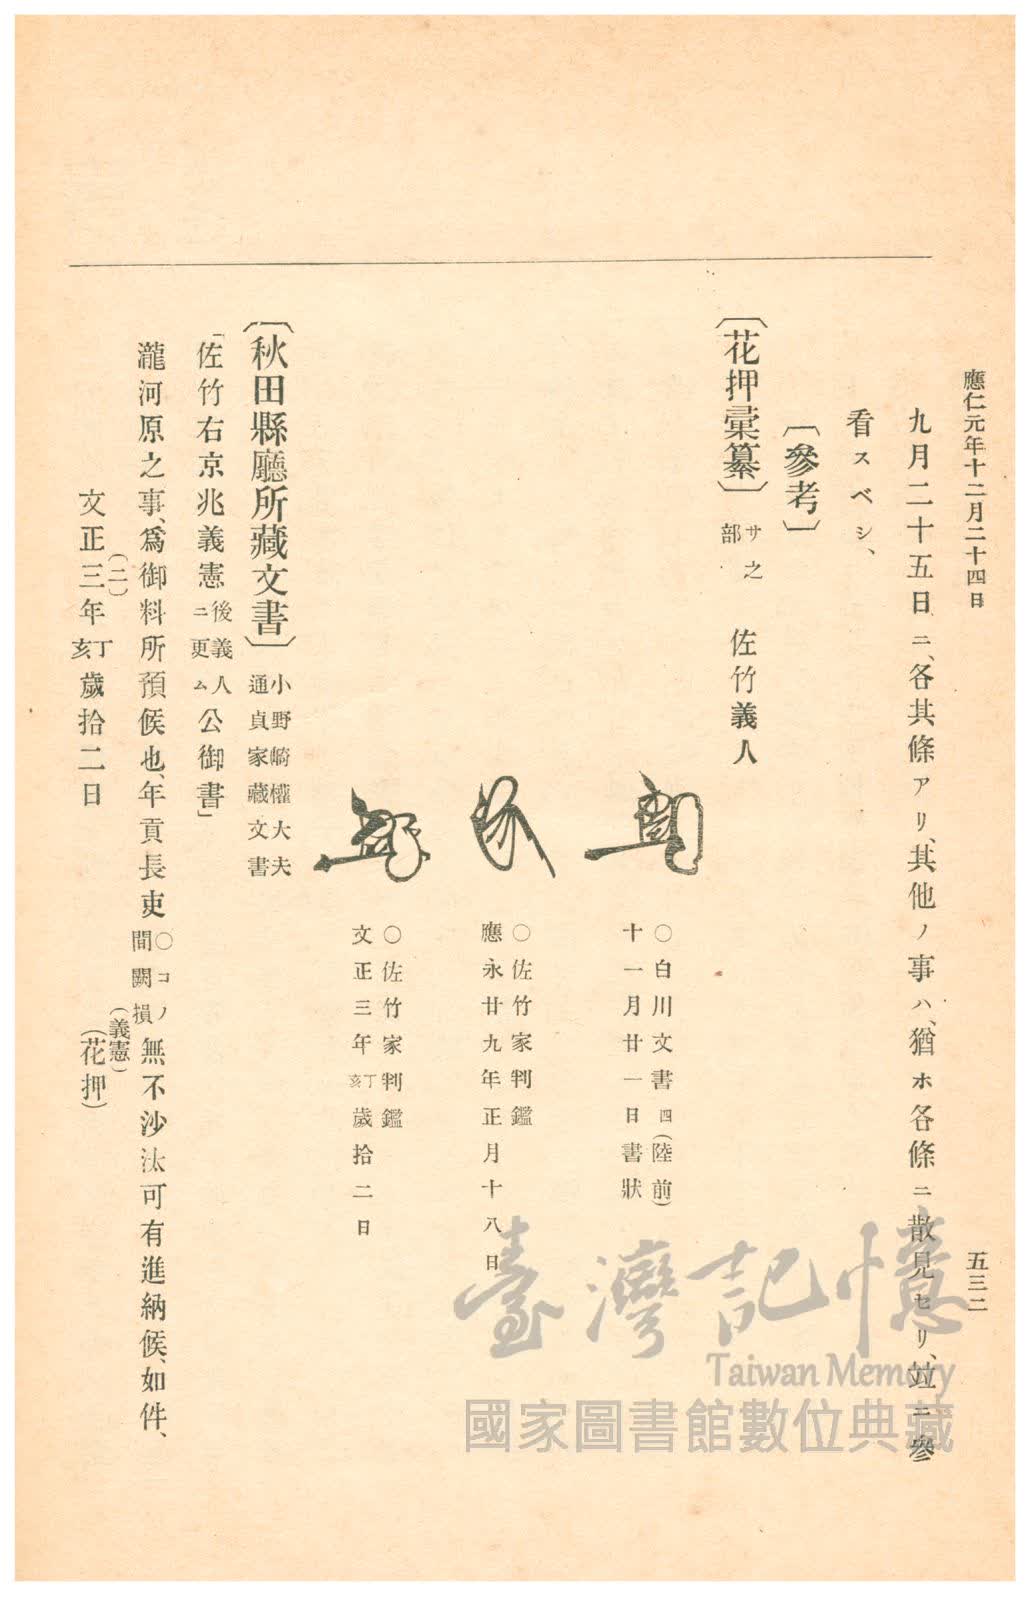 應仁元年十二月二十四日
五三二
九月二十五日ニ、各其條アリ、其他ノ事ハ、猶ホ各條ニ散見セリ、竝ニ參
看スベシ、
〔參考〕
〔花押彙纂〕サ之部 佐竹義人
○白川文書四(陸前)
十一月廿一日書狀
○佐竹家判鑑
應永廿九年正月十八日
○佐竹家判鑑
文正三年丁亥歲拾二日
〔秋田縣廳所藏文書〕小野崎權大夫通貞家藏文書
「佐竹右京兆義憲後義人ニ更ム公御書」
瀧河原之事、爲御料所預候也、年貢長吏○コノ間闕損無不沙汰可有進納候、如件、
(二)
(義憲)
文正三年丁亥歲拾二日
(花押)
臺灣記憶
Taiwan Memory
國家圖書館數位典藏